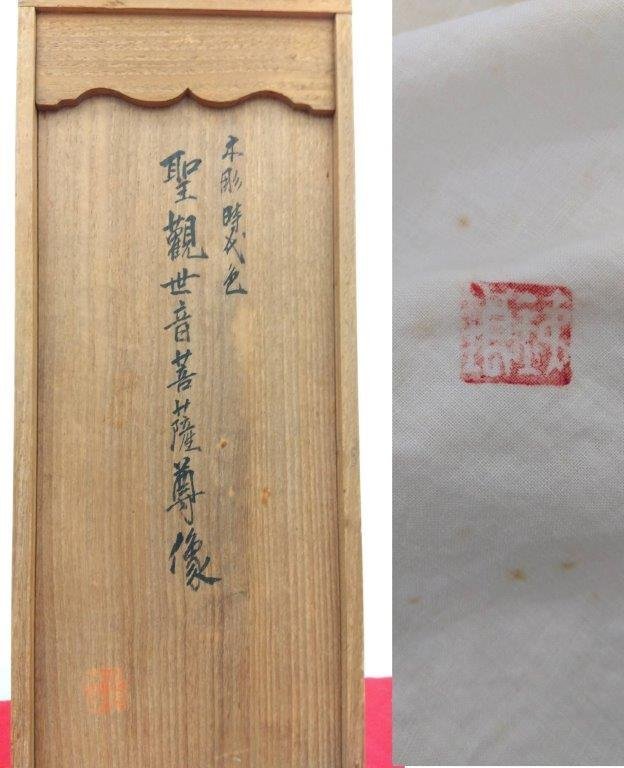 木彫時代色
聖觀世音菩薩尊像